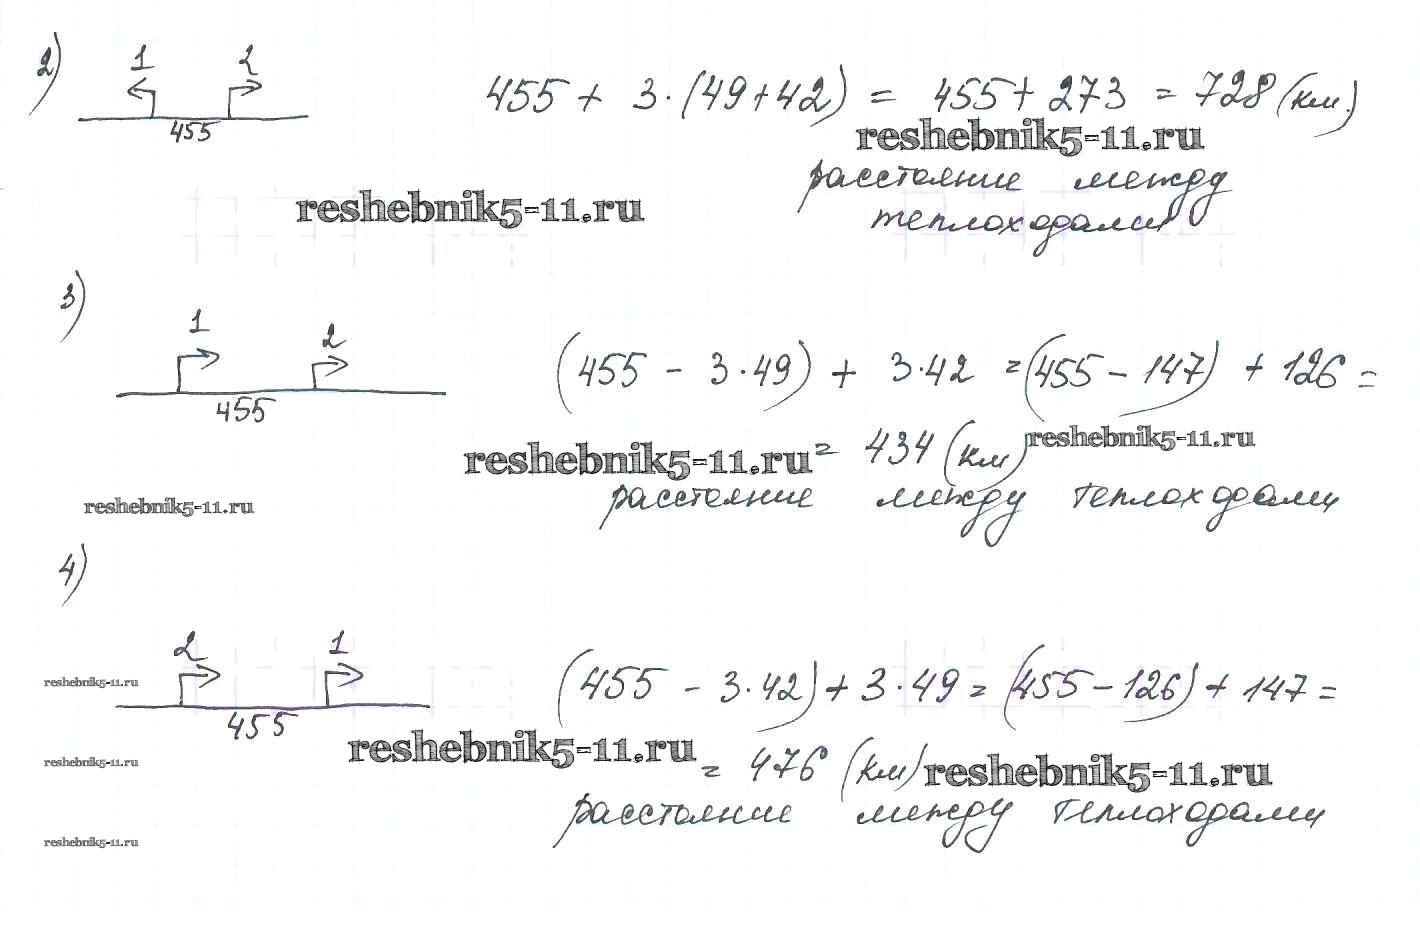 2)
1 2
455
455 + 3·(49+42) = 455+273 = 728 (км)
reshebnik5-11.ru
расстояние между
теплоходами
reshebnik5-11.ru
3)
1 2
455
(455 - 3·49) + 3·42 = (455-147) + 126 =
= 434 (км)
reshebnik5-11.ru
reshebnik5-11.ru
расстояние между теплоходами
reshebnik5-11.ru
4)
2 1
455
(455 - 3·42) + 3·49 = (455-126) + 147 =
reshebnik5-11.ru
reshebnik5-11.ru
= 476 (км)
reshebnik5-11.ru
reshebnik5-11.ru
расстояние между теплоходами
reshebnik5-11.ru